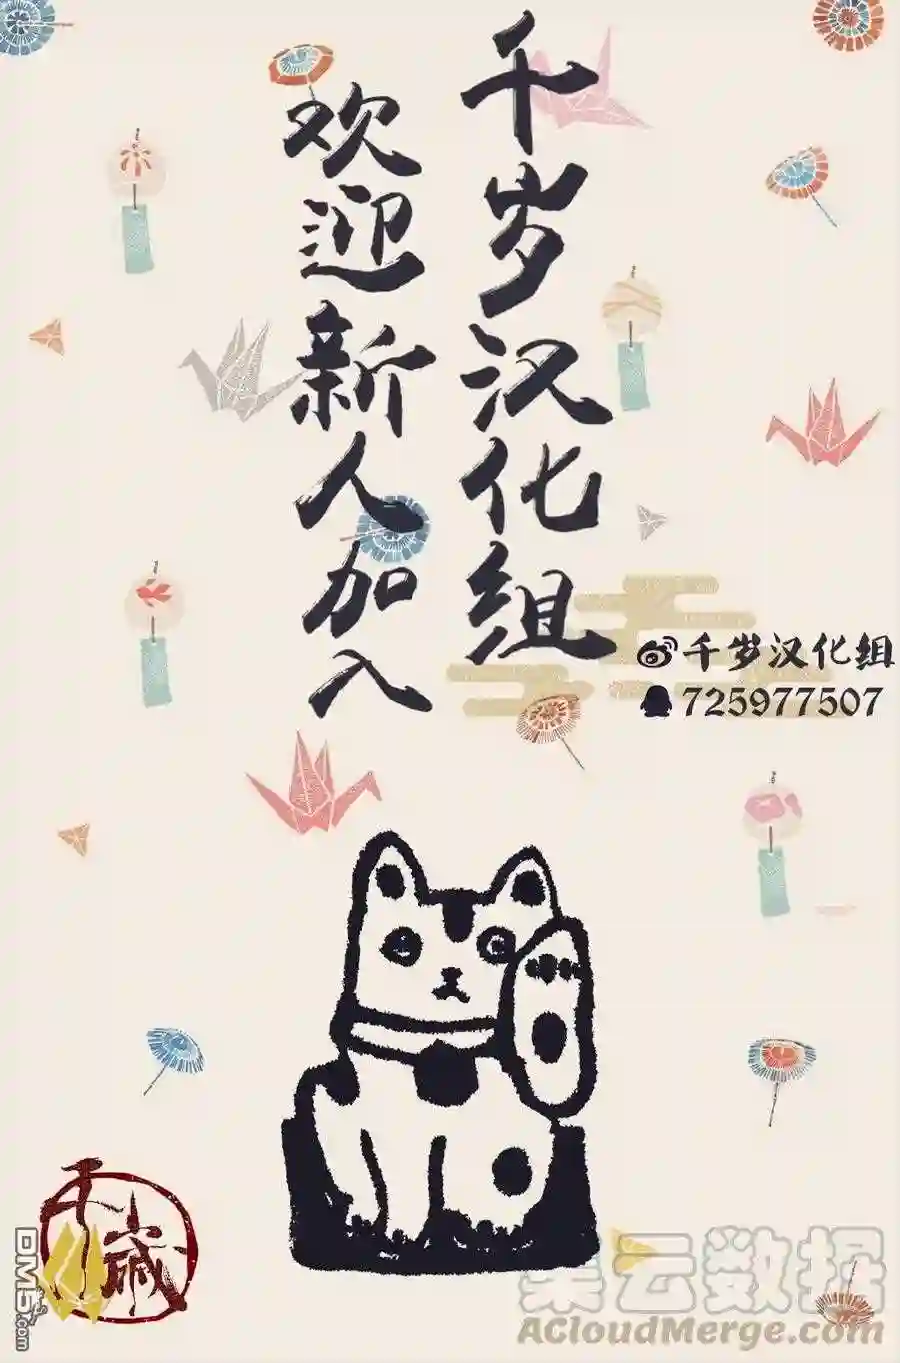 千岁汉化组
欢迎新人加入
千岁汉化组
725977507
千歳
DM5.com
集云数据
ACloudMerge.com